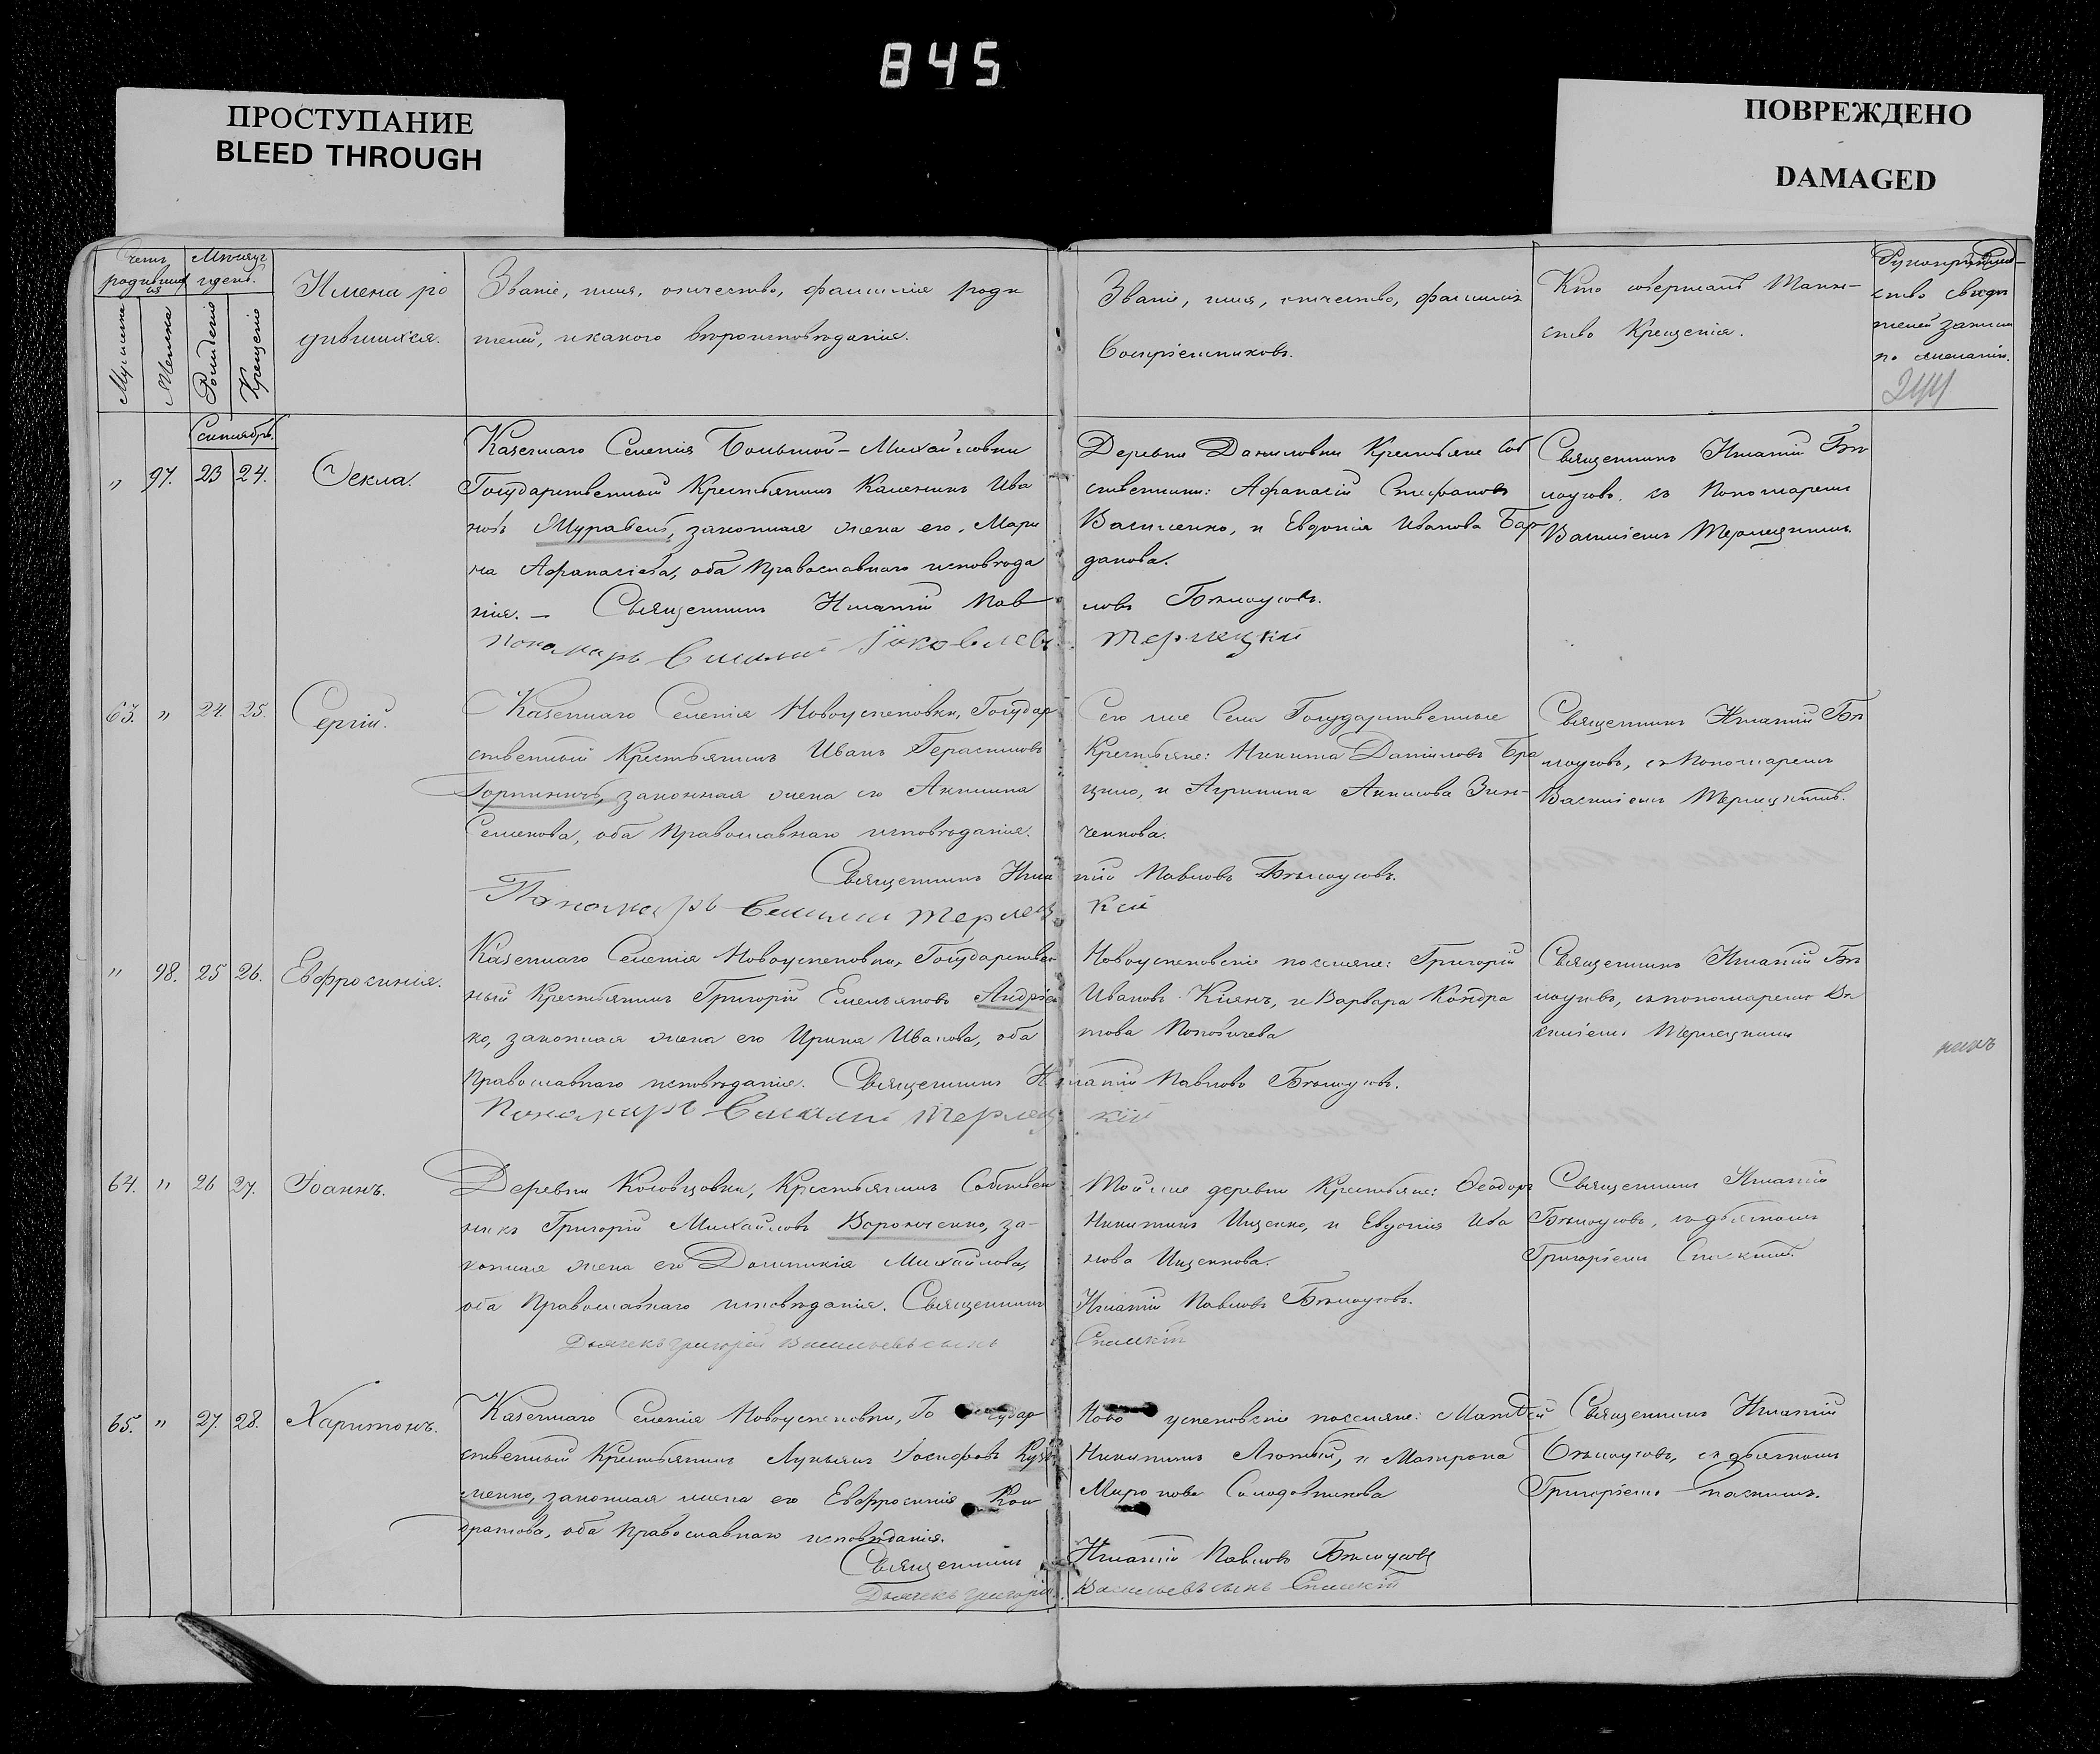 845
ПРОСТУПАНИЕ
BLEED THROUGH
ПОВРЕЖДЕНО
DAMAGED
Счетъ родившихся
Мѣсяцъ и день.
Мужеска
Женска
Рожденія
Крещенія
Имена ро
дившихся.
Званіе, имя, отчество, фамилія роди
телей, и какого вѣроисповѣданія.
Званіе, имя, отчество, фамилія
Воспріемниковъ.
Кто совершалъ Таин-
ство Крещенія.
Рукоприклад-
ство свидѣ
телей записи
по желанію.
Сентябрь.
„ 97. 23 24. Ѳекла.
Казеннаго Селенія Большой-Михайловки
Государственный Крестьянинъ Каленикъ Ива
новъ Муравель, законная жена его Мари
на Афанасіева, оба Православнаго исповѣда
нія. – Священникъ Игнатій Пав
ловъ Бѣлоусовъ.
Пономарь Василій Яковлевъ Терлецкій
Деревни Даниловки Крестьяне Соб
ственники: Афанасій Стефановъ
Василенко, и Евдокія Иванова Бар
данова.
Священникъ Игнатій Бѣ
лоусовъ, съ Пономаремъ
Василіемъ Терлецкимъ.
63. „ 24. 25. Сергій.
Казеннаго Селенія Новоуспеновки, Государ
ственный Крестьянинъ Иванъ Герасимовъ
законная жена его Акилина
Семенова, оба Православнаго исповѣданія.
Священникъ Игна тій Павловъ Бѣлоусовъ.
Пономарь Василій Терлец кій
Сего же Села Государственные
Крестьяне: Никита Даніиловъ
и Агрипина Акимова Зин-
ченкова.
Священникъ Игнатій Бѣ
лоусовъ, съ Пономаремъ
Василіемъ Терлецкимъ.
„ 98. 25 26. Евфросинія.
Казеннаго Селенія Новоуспеновки, Государствен
ный Крестьянинъ Григорій Емельяновъ Андріен
ко, законная жена его Ирина Иванова, оба
Православнаго исповѣданія. Священникъ Игнатій Павловъ Бѣлоусовъ.
Пономарь Василій Терлец кій
Новоуспеновскіе поселяне: Григорій
Ивановъ Киянъ, и Варвара Кондра
това Поповичева
Священникъ Игнатій Бѣ
лоусовъ, съ пономаремъ Ва
силіемъ Терлецкимъ
64. „ 26 27. Іоаннъ.
Деревни Крестьянинъ Собствен
никъ Григорій Михайловъ Воронченко, за-
конная жена его Домникія Михайлова,
оба Православнаго исповѣданія. Священникъ
Игнатій Павловъ Бѣлоусовъ.
Дьячекъ Григорій Васильевъ сынъ Спасскій
Той же деревни Крестьяне: Ѳеодоръ
Никитинъ Ищенко, и Евдокія Ива
нова Ищенкова.
Священникъ Игнатій
Бѣлоусовъ, съ дьячкомъ
Григоріемъ Спасскимъ.
65. „ 27. 28. Харитонъ.
Казеннаго Селенія Новоуспеновки, Государ
ственный Крестьянинъ Лукьянъ Іосифовъ Кузь
менко, законная жена его Евфросинія Кон
дратова, оба Православнаго исповѣданія.
Священникъ Игнатій Павловъ Бѣлоусовъ
Дьячекъ Григорій Васильевъ сынъ Спасскій
Новоуспеновскіе поселяне: Матвей
Никитинъ Лютый, и Матрона
Миронова Солодовникова
Священникъ Игнатій
Бѣлоусовъ, съ дьячкомъ
Григоріемъ Спаскимъ.